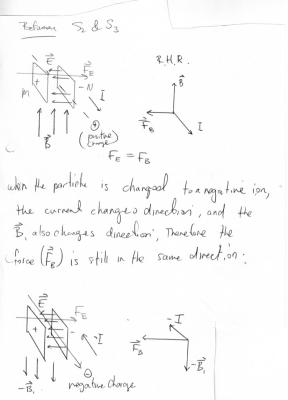 Between S₂ & S₃
E⃗
F⃗_E
R.H.R.
B⃗
+
- N
M
I
⊕
(positive charge)
B⃗
F⃗_B
I
F_E = F_B
when the particle is changed to a negative ion,
the current changes direction, and the
B⃗, also changes direction, Therefore the
force (F⃗_B) is still in the same direction:
E⃗
F_E
+
-
-I
-I
F⃗_B
-B⃗₁
-B⃗₁
⊖
negative charge